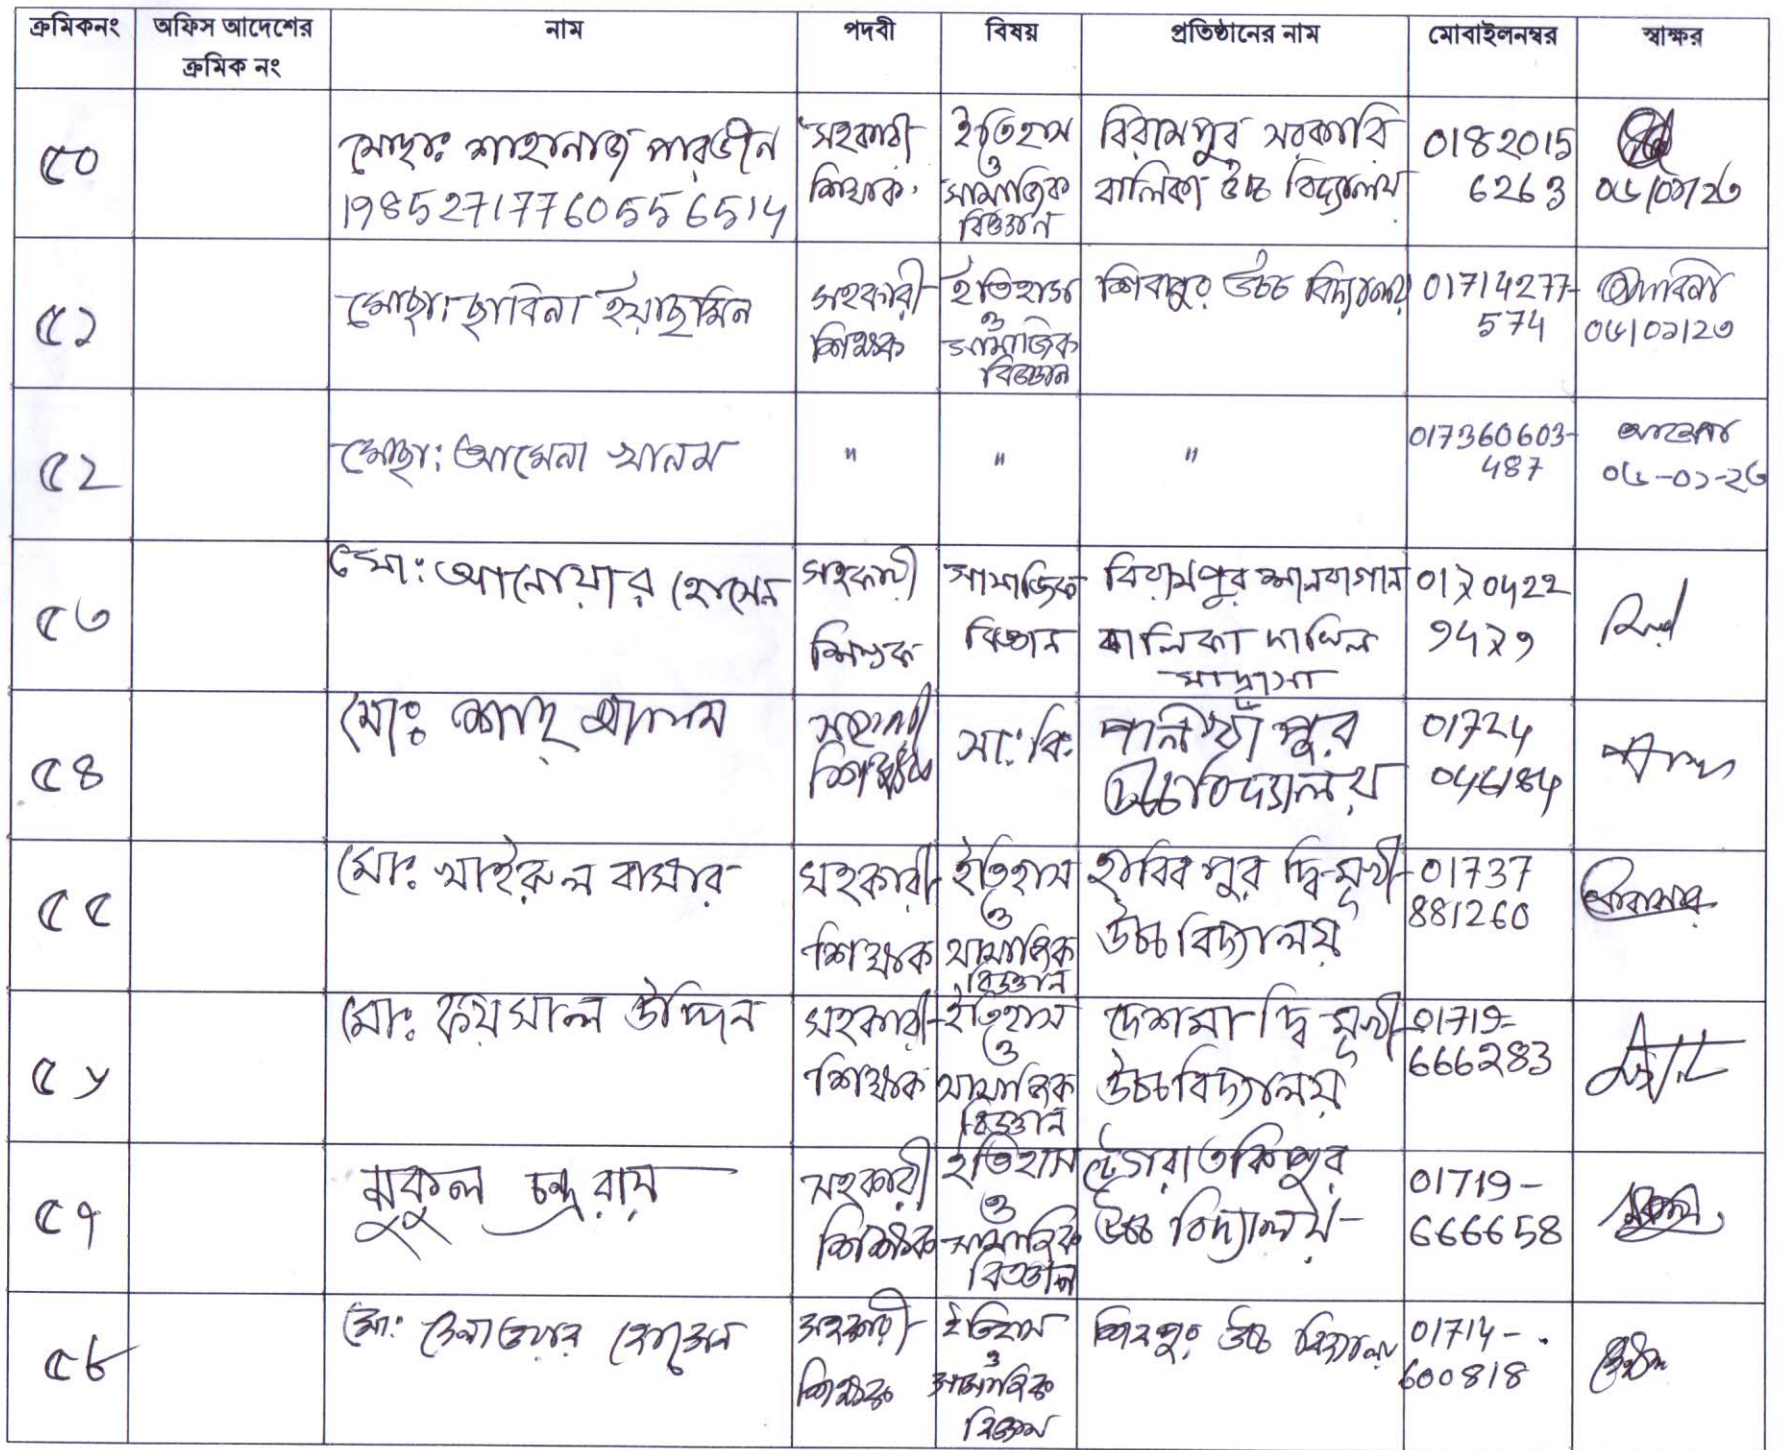 ক্রমিকনং অফিস আদেশের ক্রমিক নং নাম পদবী বিষয় প্রতিষ্ঠানের নাম মোবাইলনম্বর স্বাক্ষর
৫০
মোছাঃ শাহানাজ পারভীন
19852717760556514
সহকারী
শিক্ষক
ইতিহাস
ও
সামাজিক
বিজ্ঞান
বিরামপুর সরকারি
বালিকা উচ্চ বিদ্যালয়
0182015
6263
০৬/০১/২৩
৫১
মোছাঃ ছাবিনা ইয়াছমিন
সহকারী
শিক্ষক
ইতিহাস
ও
সামাজিক
বিজ্ঞান
শিবপুর উচ্চ বিদ্যালয়
01714277-
574
০৬/০১/২৩
৫২
মোছা: আমেনা খানম
"
"
"
017360603-
487
০৬-০১-২৩
৫৩
মো: আনোয়ার হোসেন
সহকারী
শিক্ষক
সামাজিক
বিজ্ঞান
বিরামপুর শালবাগান
বালিকা দাখিল
মাদ্রাসা
৫৪
মোঃ শাহ্ আলম
সহকারী
শিক্ষক
সা: বি:
উচ্চ বিদ্যালয়
01724
৫৫
মোঃ খাইরুল বাসার
সহকারী
শিক্ষক
ইতিহাস
ও
সামাজিক
বিজ্ঞান
হাবিবপুর দ্বি-মুখী
উচ্চ বিদ্যালয়
01737
881260
৫৬
মোঃ ফয়সাল উদ্দিন
সহকারী
শিক্ষক
ইতিহাস
ও
সামাজিক
বিজ্ঞান
দেশমা দ্বি-মুখী
উচ্চ বিদ্যালয়
01719-
666283
৫৭
মুকুল চন্দ্র রায়
সহকারী
শিক্ষক
ইতিহাস
ও
সামাজিক
বিজ্ঞান
উচ্চ বিদ্যালয়
01719-
666658
৫৮
মো: হোসেন
সহকারী
শিক্ষক
ইতিহাস
ও
সামাজিক
বিজ্ঞান
শিবপুর উচ্চ বিদ্যালয়
01714-
600818